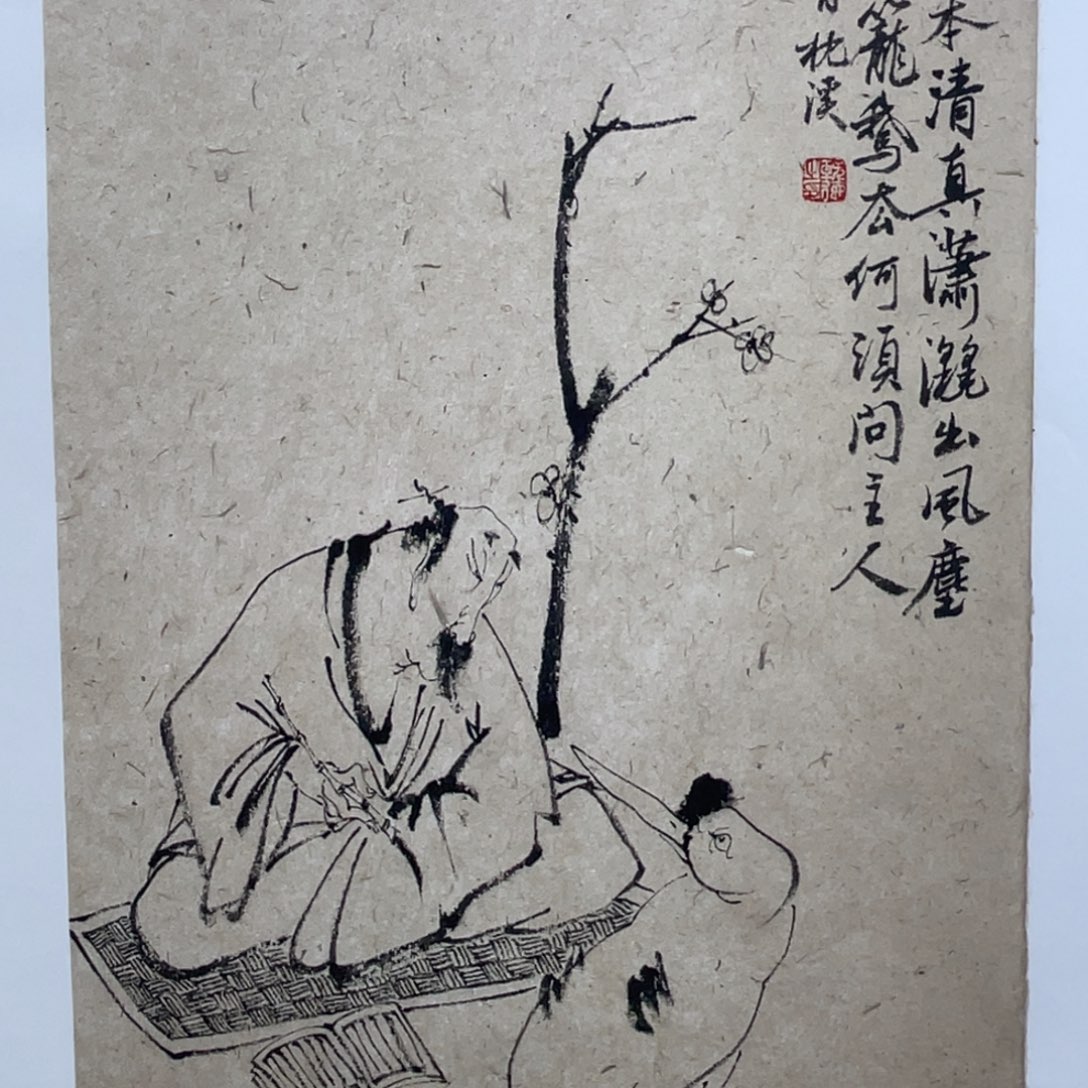 本清真瀟灑出風塵
籠鵞厺何須問主人
枕溪